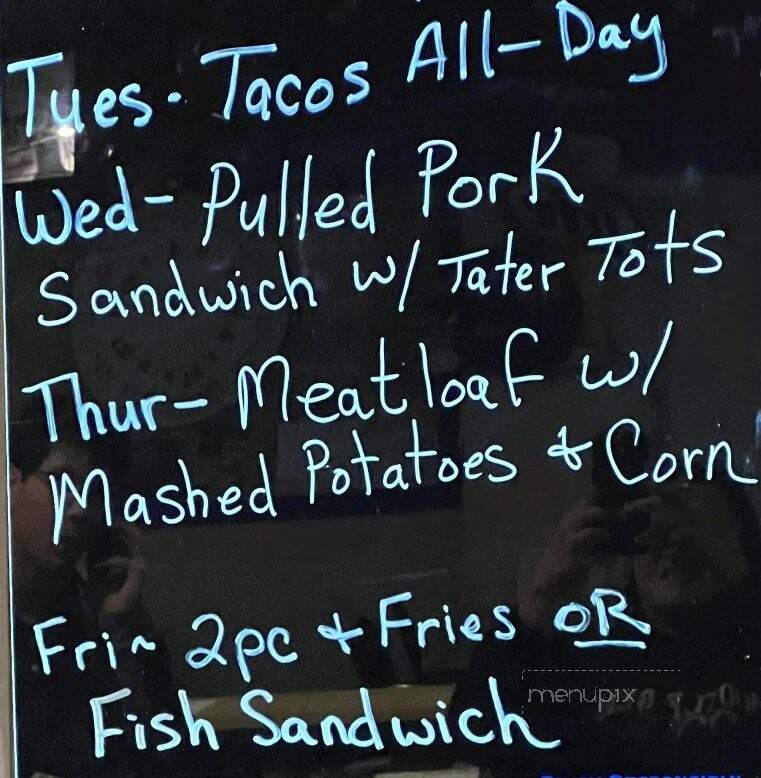 Tues. Tacos All-Day
Wed- Pulled Pork
Sandwich w/ Tater Tots
Thur- Meatloaf w/
Mashed Potatoes & Corn
Fri~ 2pc & Fries OR
Fish Sandwich
menupix